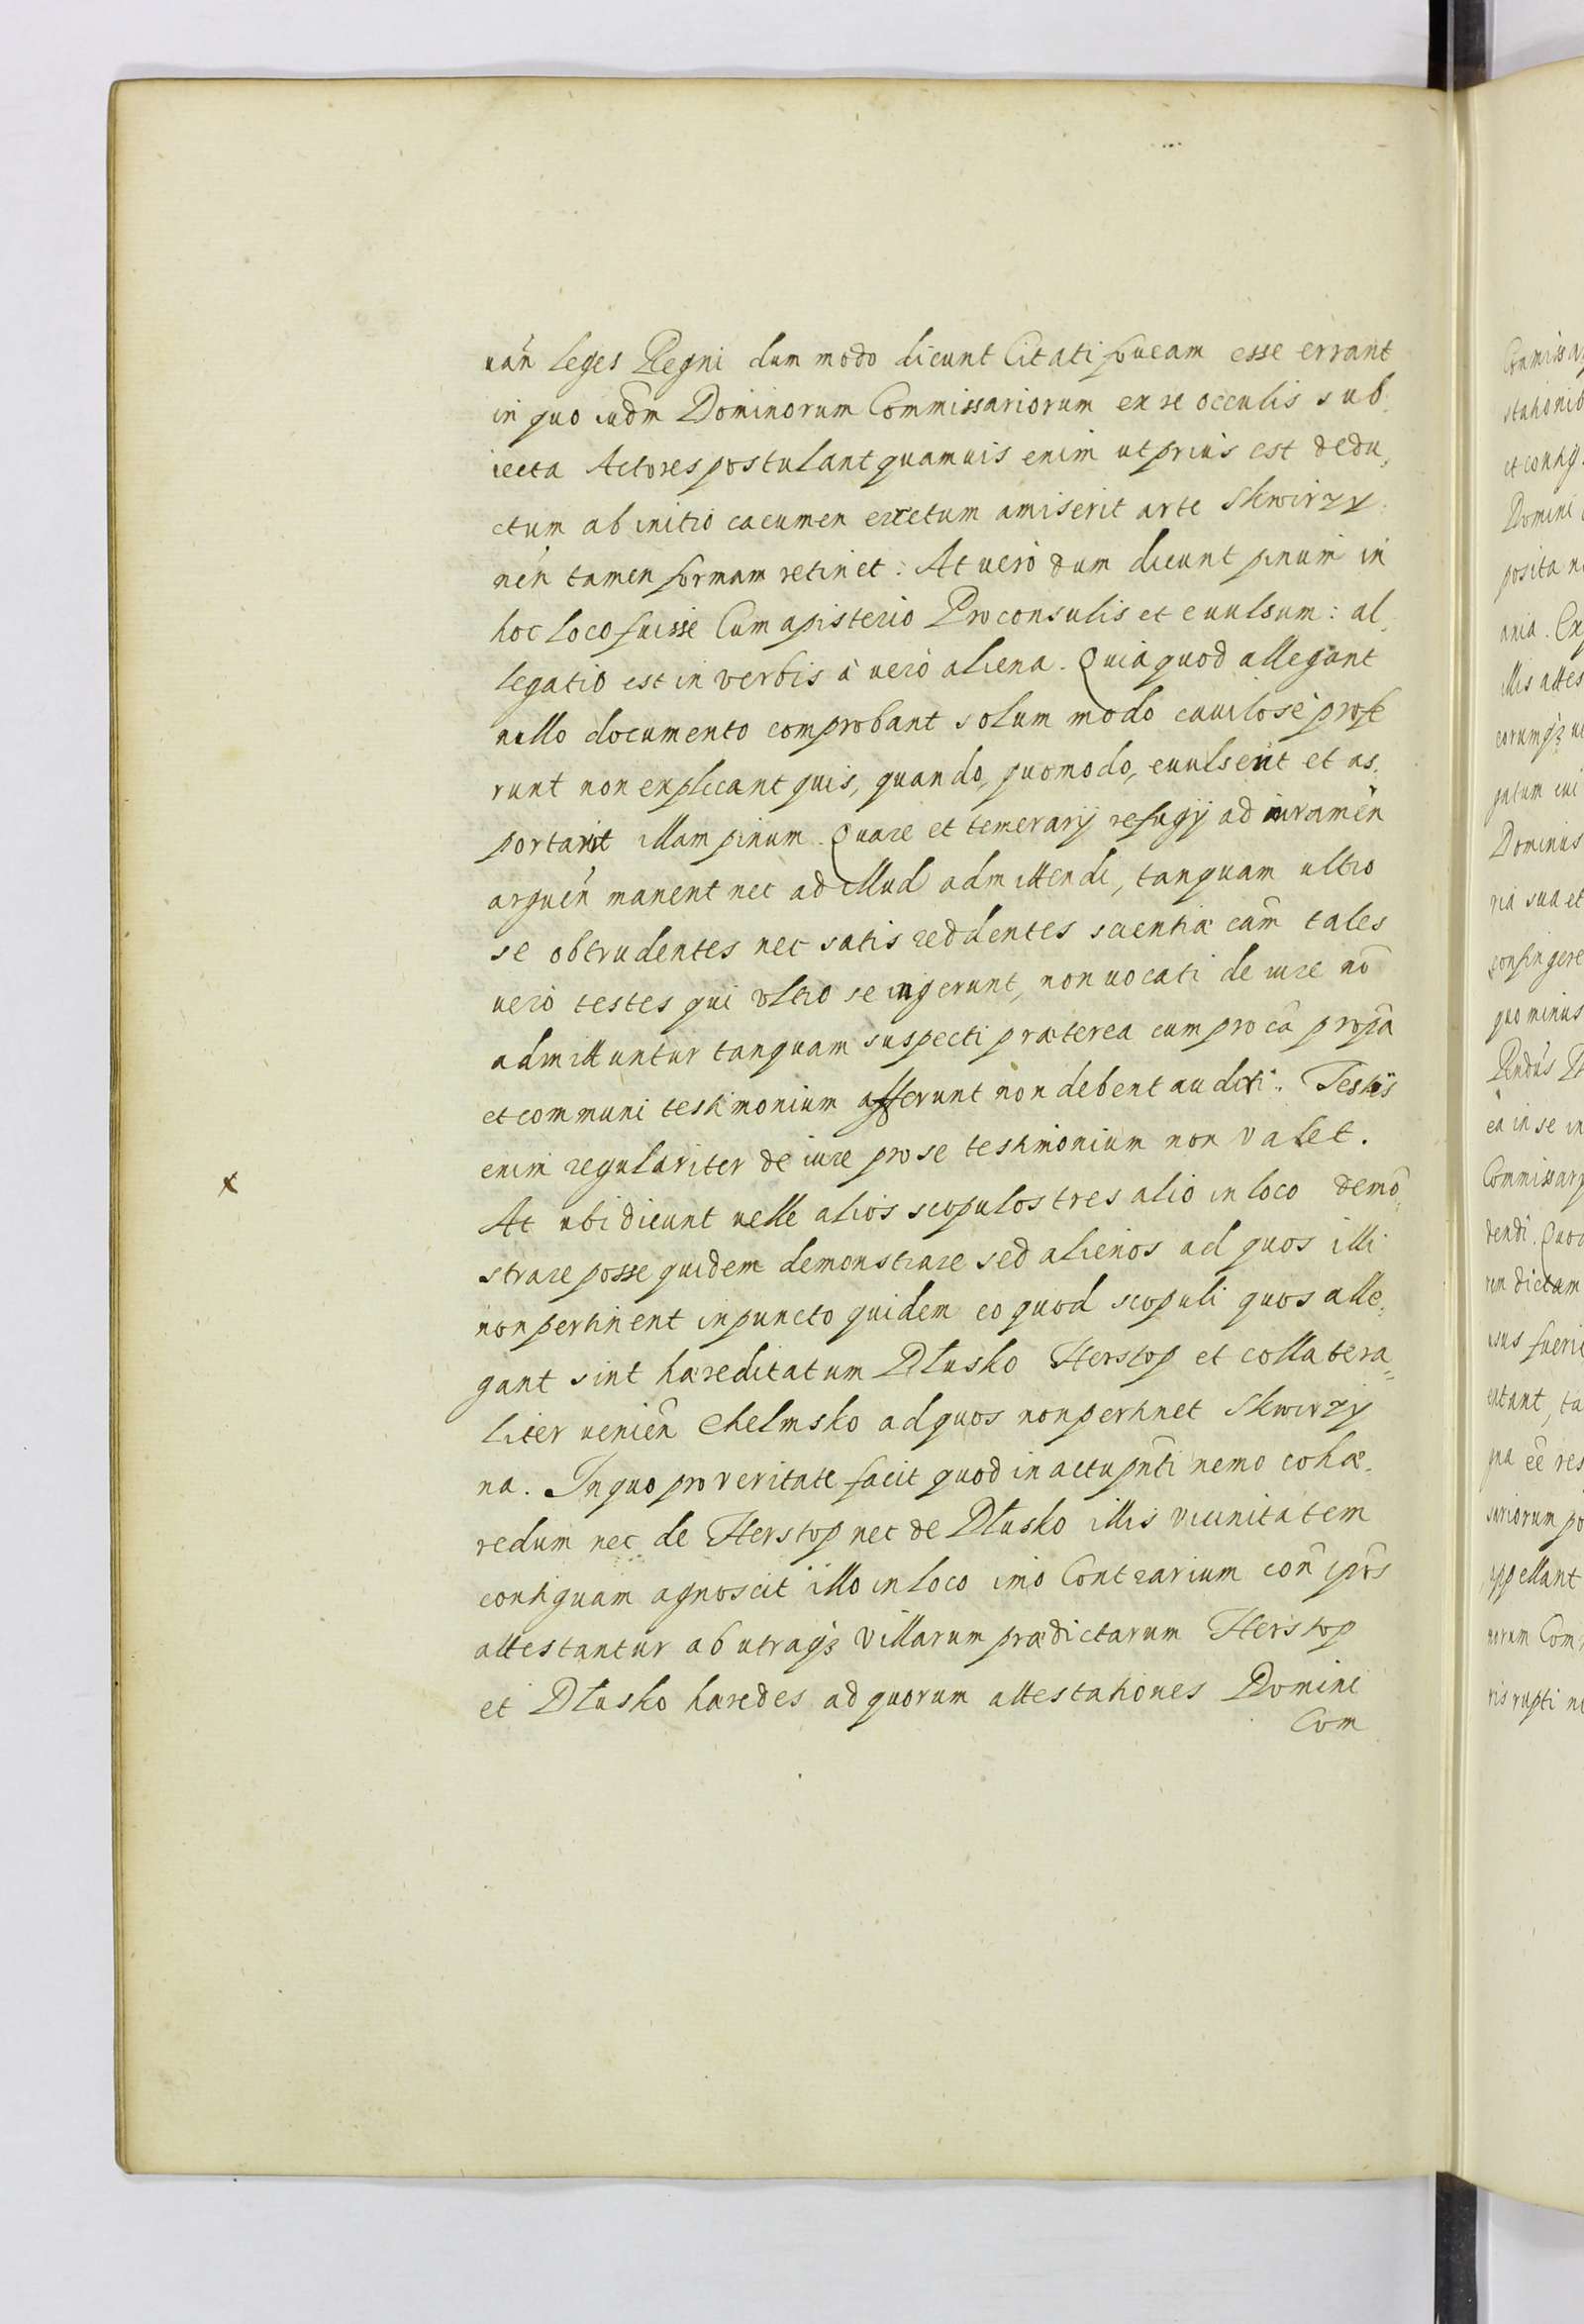 uan̄ leges Regni dum modo dicunt Citati foueam esse errant
in quo iudm̄ Dominorum Commissariorum ex re occulis sub,
iecta Actores postulant quamuis enim ut prius est dedu,
ctum ab initio cacumen erectum amiserit arte Skwirzy
nen̄ tamen formam retinet: At uerò dum dicunt pinum in
hoc loco fuisse Cum apisterio Proconsulis et euulsum: al,
legatio est in verbis à uerò aliena. Quia quod allegant
nullo documento comprobant solum modo cauilosè profe
runt non explicant quis, quando, quomodo, euulserit et as,
portarit illam pinum. Quare et temerarij refugij ad iuramen̄
arguen̄ manent nec ad illud admittendi, tanquam ultro
se obtrudentes nec satis reddentes scientiæ cam̄ tales
uero testes qui vltro se ingerunt, non uocati de iure nō
admittuntur tanquam suspecti præterea cum pro cā proprā
et communi testimonium afferunt non debent audiri. Testis
enim regulariter de iure pro se testimonium non valet.
At ubi dicunt uelle alios scopulos tres alio in loco demō,
strare posse quidem demonstrare sed alienos ad quos illi
non pertinent in puncto quidem eo quod scopuli quos alle,
gant sint hæreditatum Dlusko Herstop et collatera=
liter uenien̄ Chelmsko ad quos non pertinet Skwirzy
na. In quo pro veritate facit quod in actu pn̄ti nemo cohæ,
redum nec de Herstop nec de Dlusko illis vicinitatem
contiguam agnoscit illo in loco imò Contrarium con̄ ip̄os
attestantur ab utraq₃ villarum prædictarum Herstop
et Dlusko hæredes ad quorum attestationes Domini
Com
x